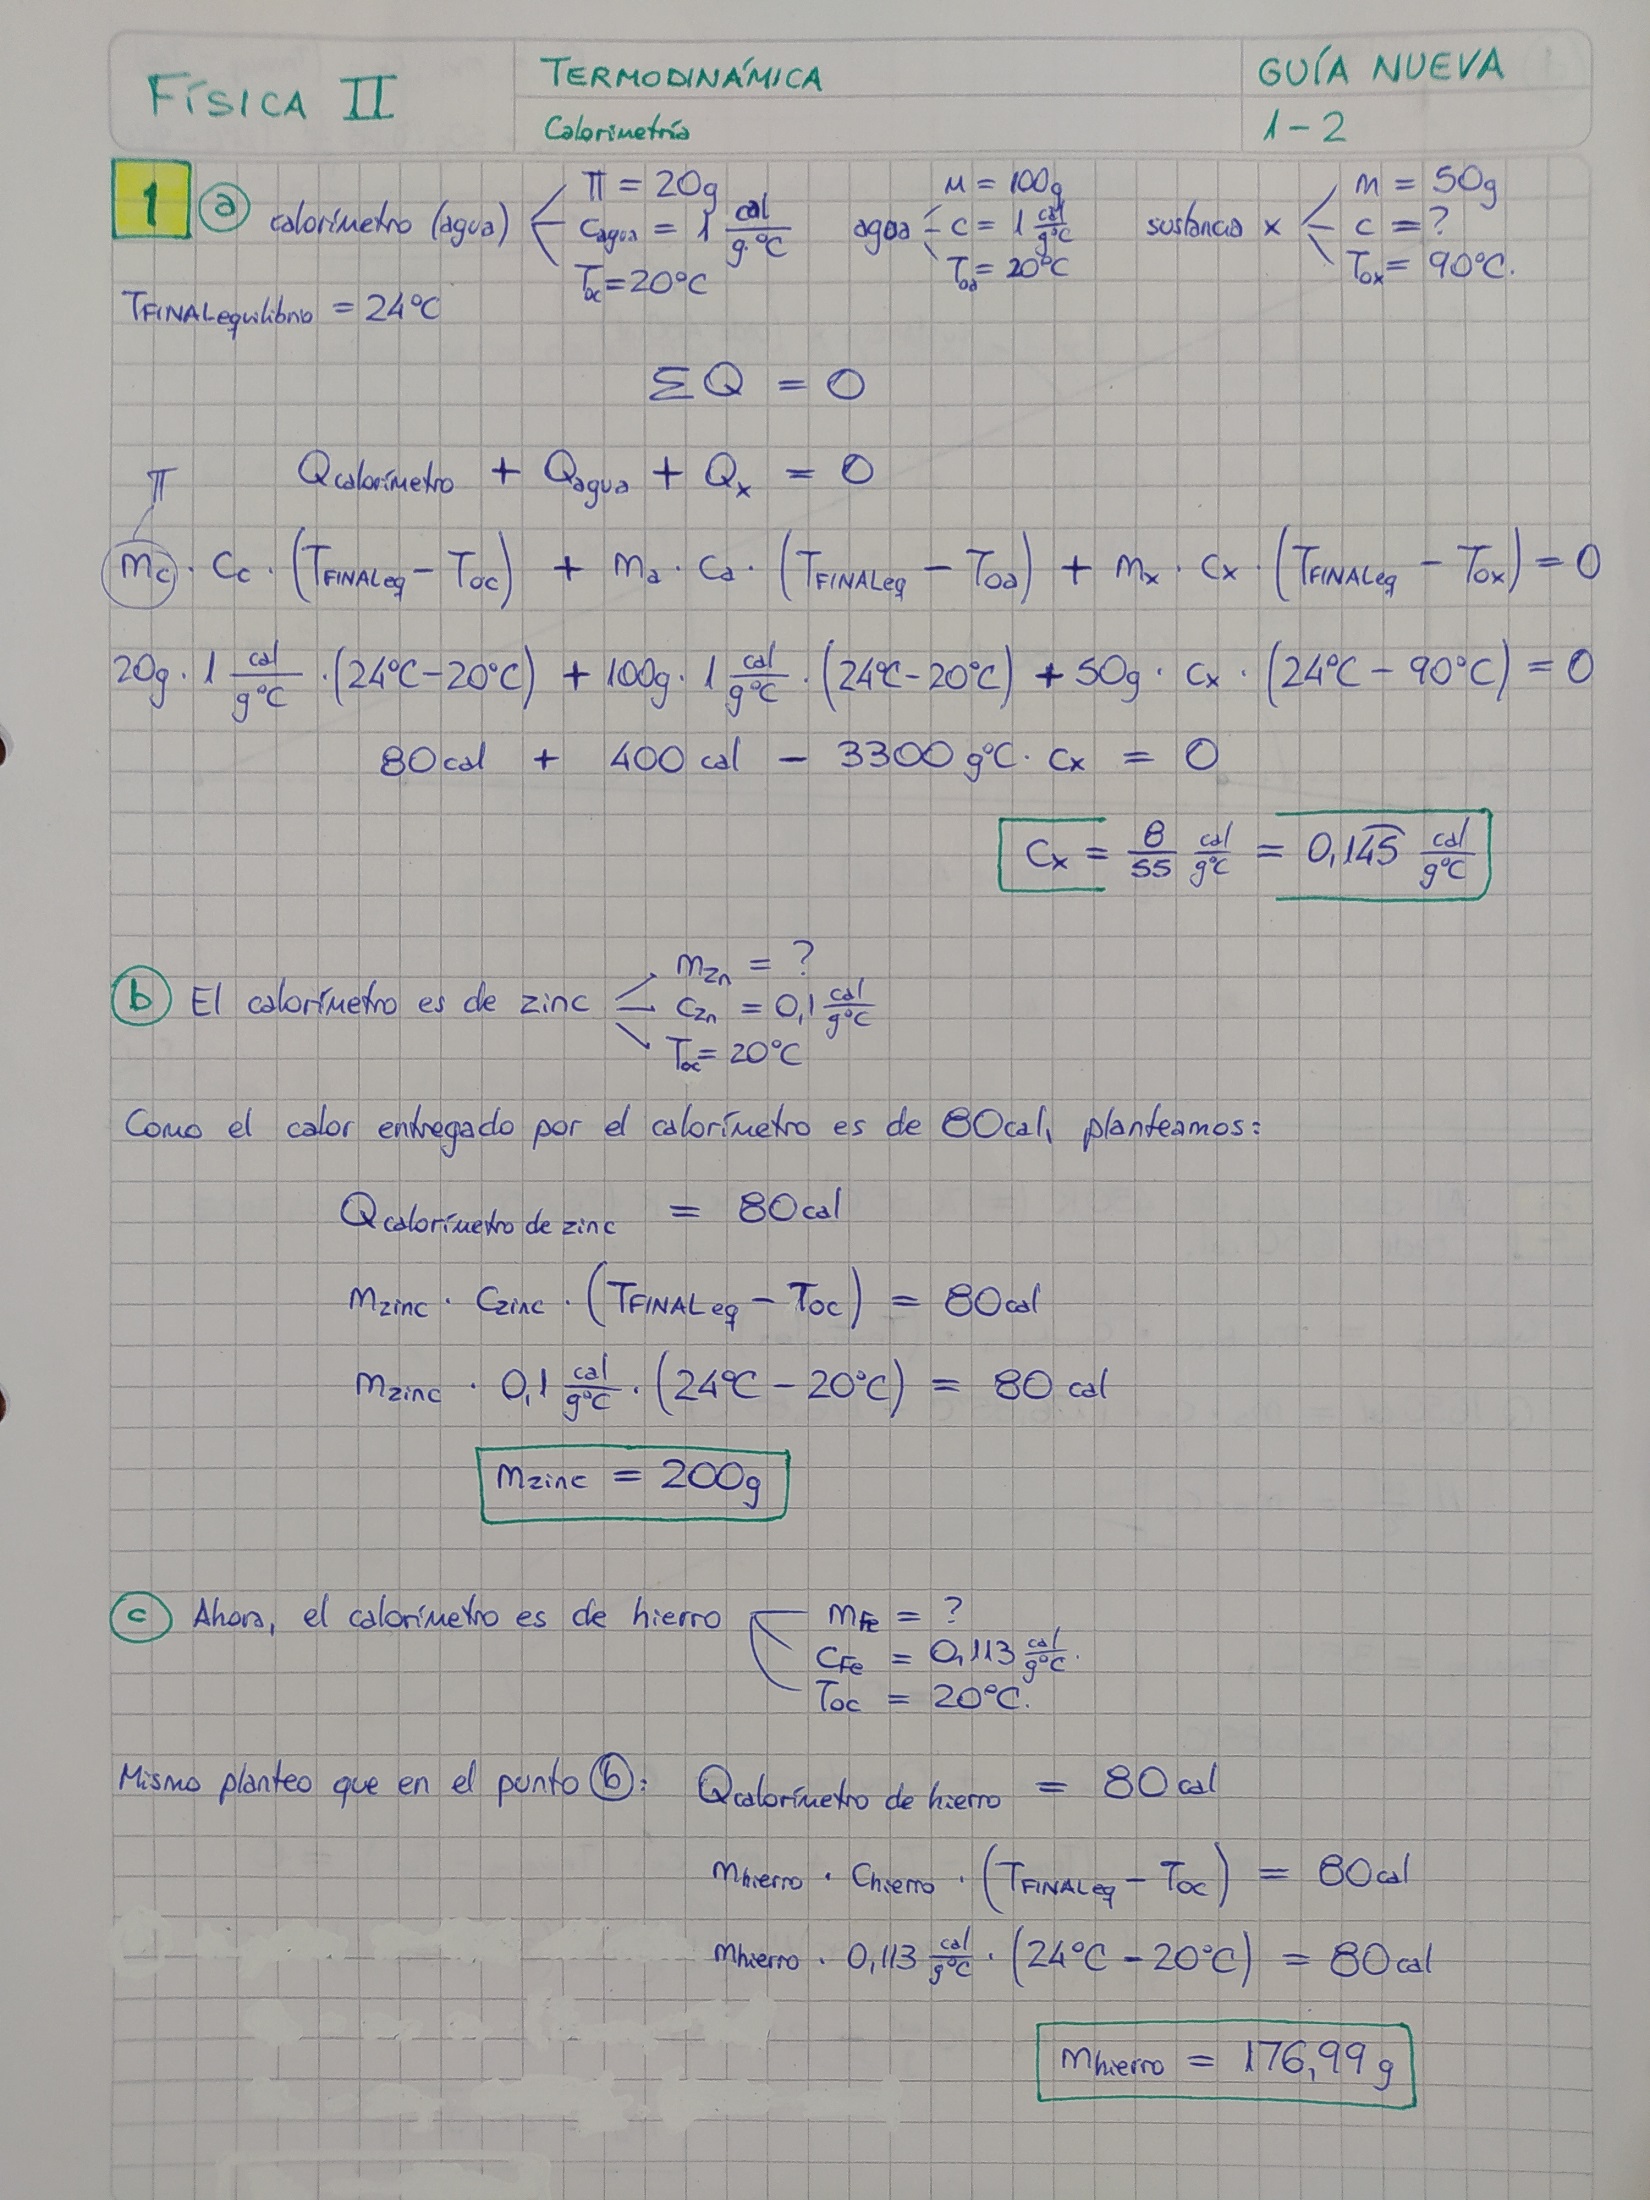 FÍSICA II
TERMODINÁMICA
Calorimetría
GUÍA NUEVA
1-2
1 a calorímetro (agua) π = 20g
c_agua = 1 cal/g.°C
T_oc = 20°C
agua M = 100g
c = 1 cal/g°C
T_oa = 20°C
sustancia x m = 50g
c = ?
T_ox = 90°C.
T_FINAL equilibrio = 24°C
ΣQ = 0
π
Q_calorímetro + Q_agua + Q_x = 0
m_c · c_c · (T_FINAL eq - T_oc) + m_a · c_a · (T_FINAL eq - T_oa) + m_x · c_x · (T_FINAL eq - T_ox) = 0
20g · 1 cal/g°C · (24°C - 20°C) + 100g · 1 cal/g°C · (24°C - 20°C) + 50g · c_x · (24°C - 90°C) = 0
80cal + 400 cal - 3300 g°C · c_x = 0
c_x = 8/55 cal/g°C = 0,14͡5 cal/g°C
b El calorímetro es de zinc m_Zn = ?
c_Zn = 0,1 cal/g°C
T_oc = 20°C
Como el calor entregado por el calorímetro es de 80cal, planteamos:
Q_calorímetro de zinc = 80cal
m_zinc · c_zinc · (T_FINAL eq - T_oc) = 80cal
m_zinc · 0,1 cal/g°C · (24°C - 20°C) = 80 cal
m_zinc = 200g
c Ahora, el calorímetro es de hierro m_Fe = ?
c_Fe = 0,113 cal/g°C.
T_oc = 20°C.
Mismo planteo que en el punto b: Q_calorímetro de hierro = 80cal
m_hierro · c_hierro · (T_FINAL eq - T_oc) = 80cal
m_hierro · 0,113 cal/g°C · (24°C - 20°C) = 80cal
m_hierro = 176,99 g